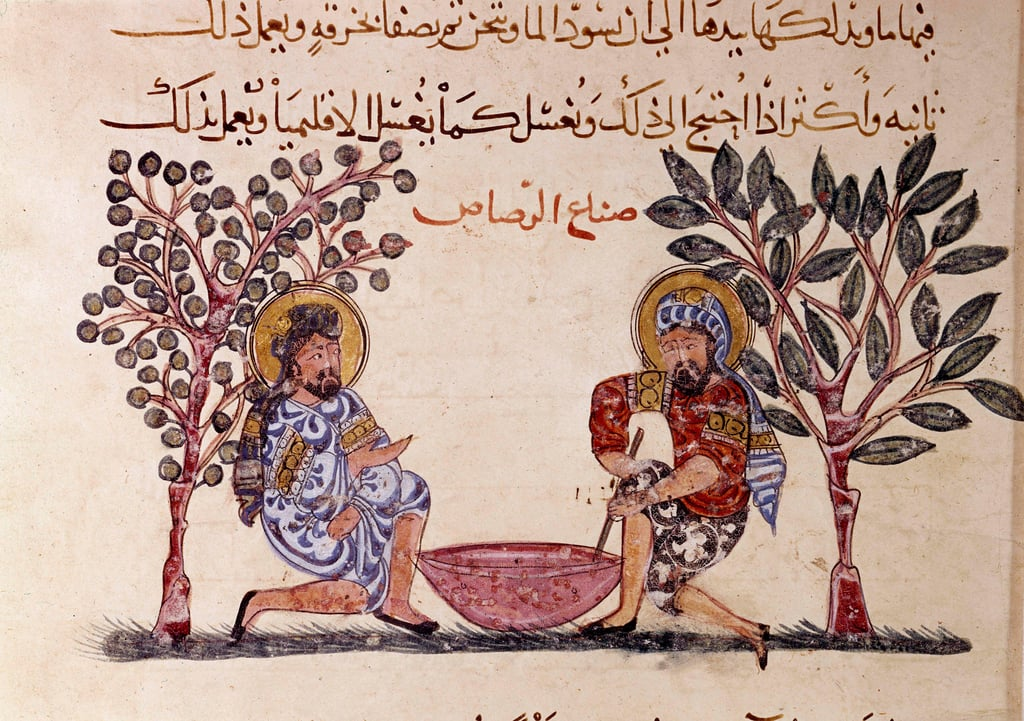 فيها ما ويدلكها بيدها الي ان يسودّ الما ويثخن ثم يصفا بخرقهٍ ويعمل ذلك
ثانيه وأكثر اذا احتيج الي ذلك ويُغسّل كما يُغسّل الاقليميا ويعمل بذلك
صناع الرّصاص